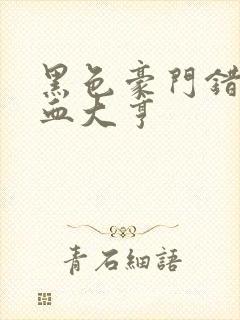 黑色豪門錯
血大亨
青石細語